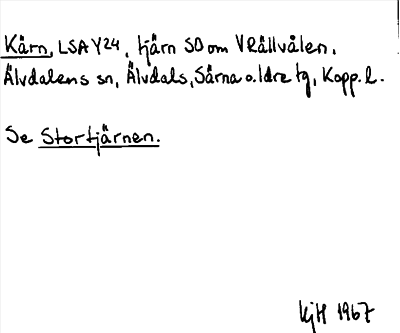 Kärn, LSA Y24, tjärn SO om V Rällvålen.
Älvdalens sn, Älvdals, Särna o. Idre tg, Kopp. l.
Se Stortjärnen.
KjH 1967